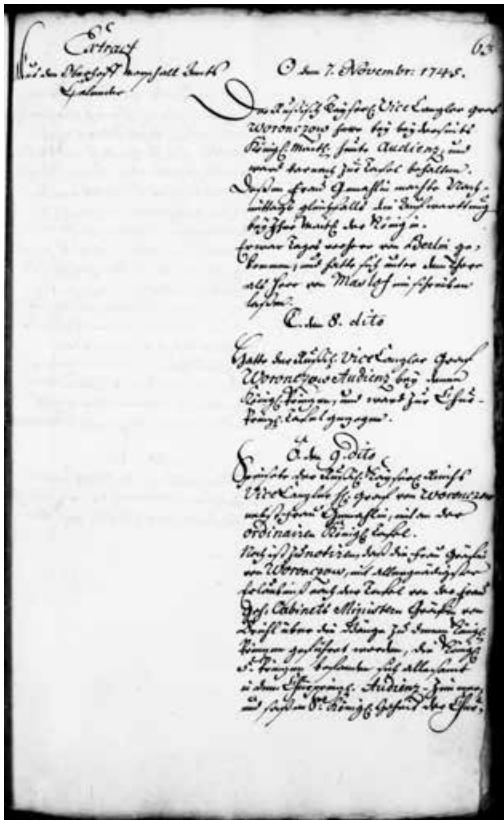 Extract
Aus dem Oberhoff Marschall Ambts
Calender
63
☉ den 7. Novembr: 1745.
Der Russisch Kayserl. Vice Canzler Graf
Woronzow hatte bey beyderseits
Königl. Maytt. heute Audienz, und
ward darauf zur Tafel behalten.
Dessen Frau Gemahlin machte Nach-
mittags gleichfalls die Aufwarttung
bey Ihro Maytt. der Königin.
Er war Tages vorhero von Berlin ge-
kommen, und hatte sich unter dem Thore
als Herr von einschreiben
laßen.
☾ den 8. dito
Hatte der Russisch. Vice Canzler Graf
Woronzow Audienz bey denen
Königl. Prinzen, und ward zur Chur-
Prinzl. Tafel gezogen.
♂ den 9. dito
Speisete der Russisch. Kayserl. Reichs
Vice Canzler H. Graf von Woronzow
nebst Frau Gemahlin, mit an der
ordinairen Königl. Tafel.
Noch ist zu notiren, daß die Frau Gräfin
von Woronzow, mit allergnädigster
Erlaubniß nach der Tafel von der Frau
Geh. Cabinets Ministern Gräfin von
Brühl über die Gänge zu denen Königl.
Prinzen geführet worden, die Königl.
Prinzen befanden sich allesamt
in dem Churprinzl. Audienz-Zimmer,
und saßen Sr. Königl. Hoheit der Chur-